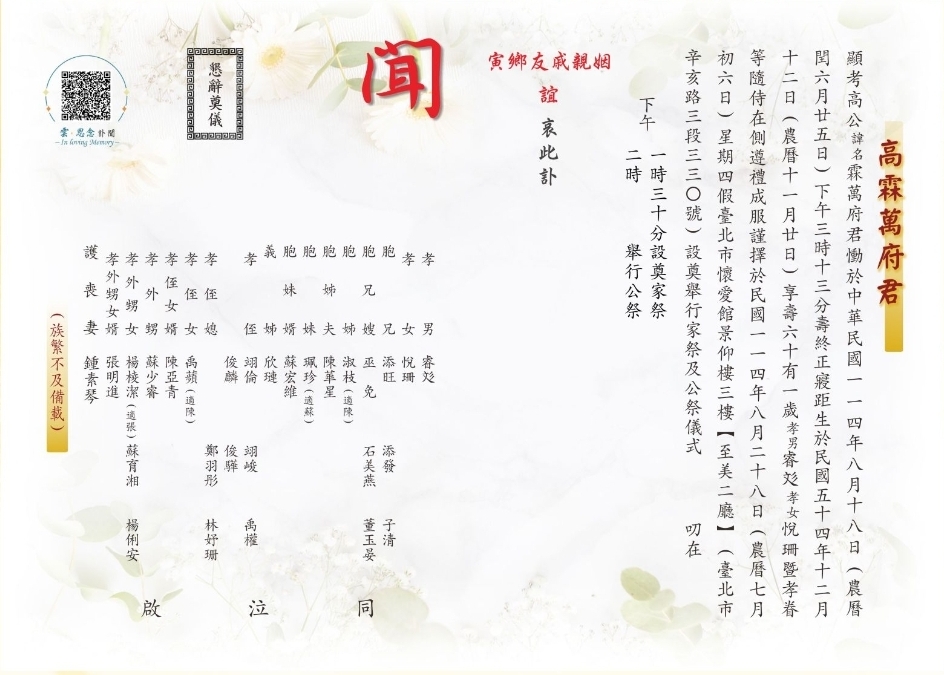 高霖萬府君
顯考高公諱名霖萬府君慟於中華民國一一四年八月十八日(農曆
閏六月廿五日)下午三時十三分壽終正寢距生於民國五十四年十二月
十二日(農曆十一月廿日)享壽六十有一歲孝男睿彣孝女悅珊暨孝眷
等隨侍在側遵禮成服謹擇於民國一一四年八月二十八日(農曆七月
初六日)星期四假臺北市懷愛館景仰樓三樓【至美二廳】(臺北市
辛亥路三段三三〇號)設奠舉行家祭及公祭儀式 叨在
下午 一時三十分設奠家祭
二時 舉行公祭
寅鄉友戚親姻
誼 哀此訃
聞
懇辭奠儀
雲.思念訃聞
~In loving Memory~
孝男 睿彣
孝女 悅珊
胞兄 添旺 添發 子清
胞兄嫂 巫免 石美燕 董玉晏
胞姊 淑枝(適陳)
胞姊夫 陳華星
胞妹 珮珍(適蘇)
胞妹婿 蘇宏維
義姊 欣璉
孝侄 翊倫 翊峻 禹權
俊麟 俊驊
孝侄媳 鄭羽彤 林妤珊
孝侄女 禹蘋(適陳)
孝侄女婿 陳亞青
孝外甥 蘇少睿
孝外甥女 楊棱潔(適張) 蘇育湘 楊俐安
孝外甥女婿 張明進
護喪妻 鍾素琴
(族繁不及備載)
同 泣 啟